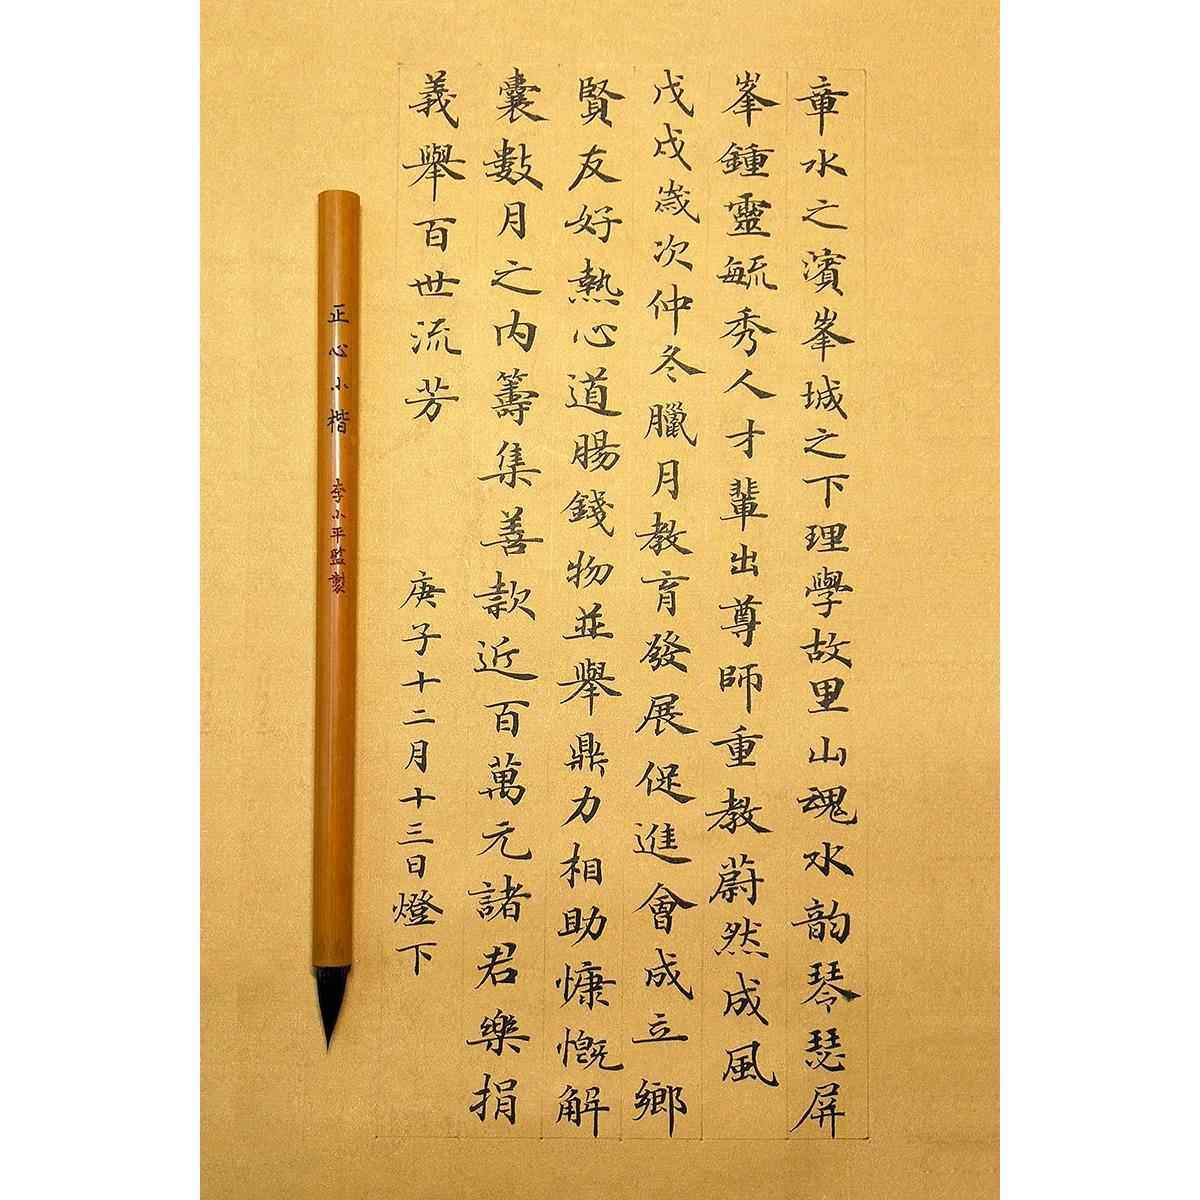 章水之濱峯城之下理學故里山魂水韵琴瑟屏
峯鍾靈毓秀人才輩出尊師重教蔚然成風
戊戌嵗次仲冬臘月教育發展促進會成立鄉
賢友好熱心道腸錢物並舉鼎力相助慷慨解
囊數月之内籌集善款近百萬元諸君樂捐
義舉百世流芳
庚子十二月十三日燈下
正心小楷 李小平監製